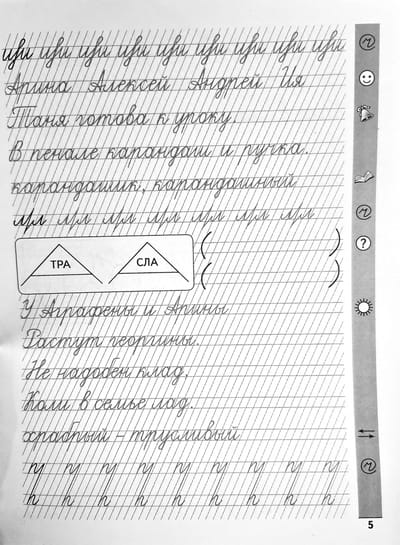 ири ири ири ири ири ири ири ири ири
Арина Алексей Андрей Ия
Таня готова к уроку.
В пенале карандаш и ручка.
карандашик, карандашный
мл мл мл мл мл мл мл мл
ТРА СЛА ( )
( )
У Аграфены и Арины
Растут георгины.
Не надобен клад,
Коли в семье лад.
храбрый – трусливый
ч ч ч ч ч ч ч ч ч
h h h h h h h h h
?
5